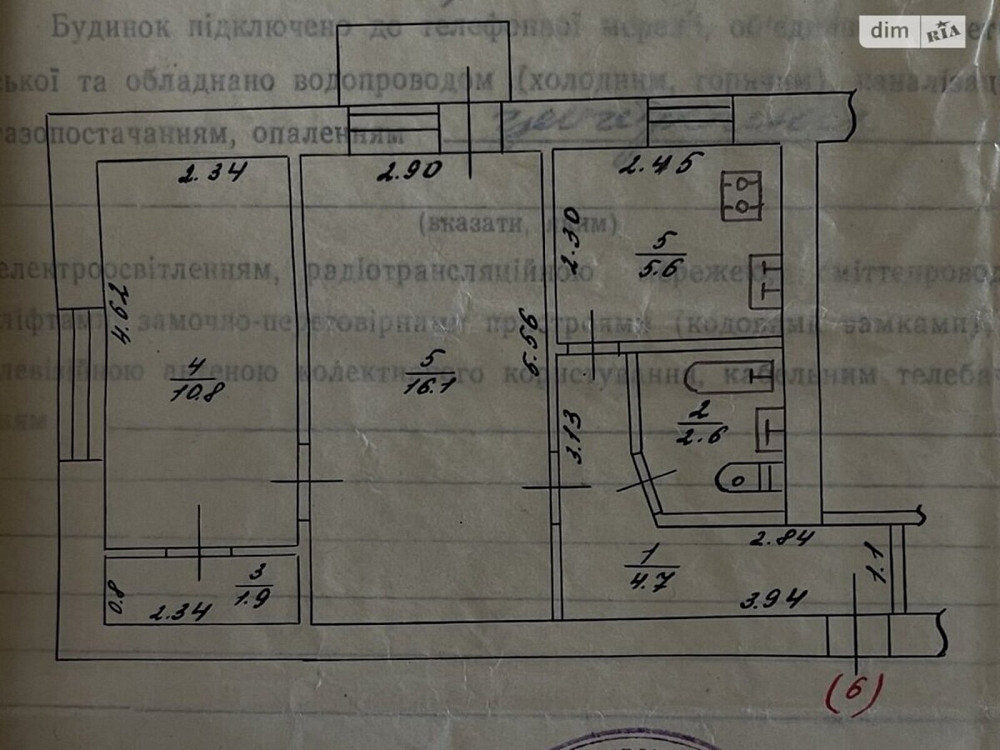 Будинок підключено до телефонної мережі,
ської та обладнано водопроводом (холодним, горячим), каналізац
газопостачанням, опаленням
(вказати, яким)
електроосвітленням, радіотрансляційною мережею, сміттепровод
ліфтами, замочно-переговірними пристроями (кодовими замками),
левізійною антеною колективного користування, кабельним телеба
ням
dim RIA
2.34
2.90
2.45
2.30
5
5.6
4.62
4
10.8
5
16.1
5.56
3.13
2
2.6
2.84
1
4.7
1.1
3
1.9
0.8
2.34
3.94
(6)